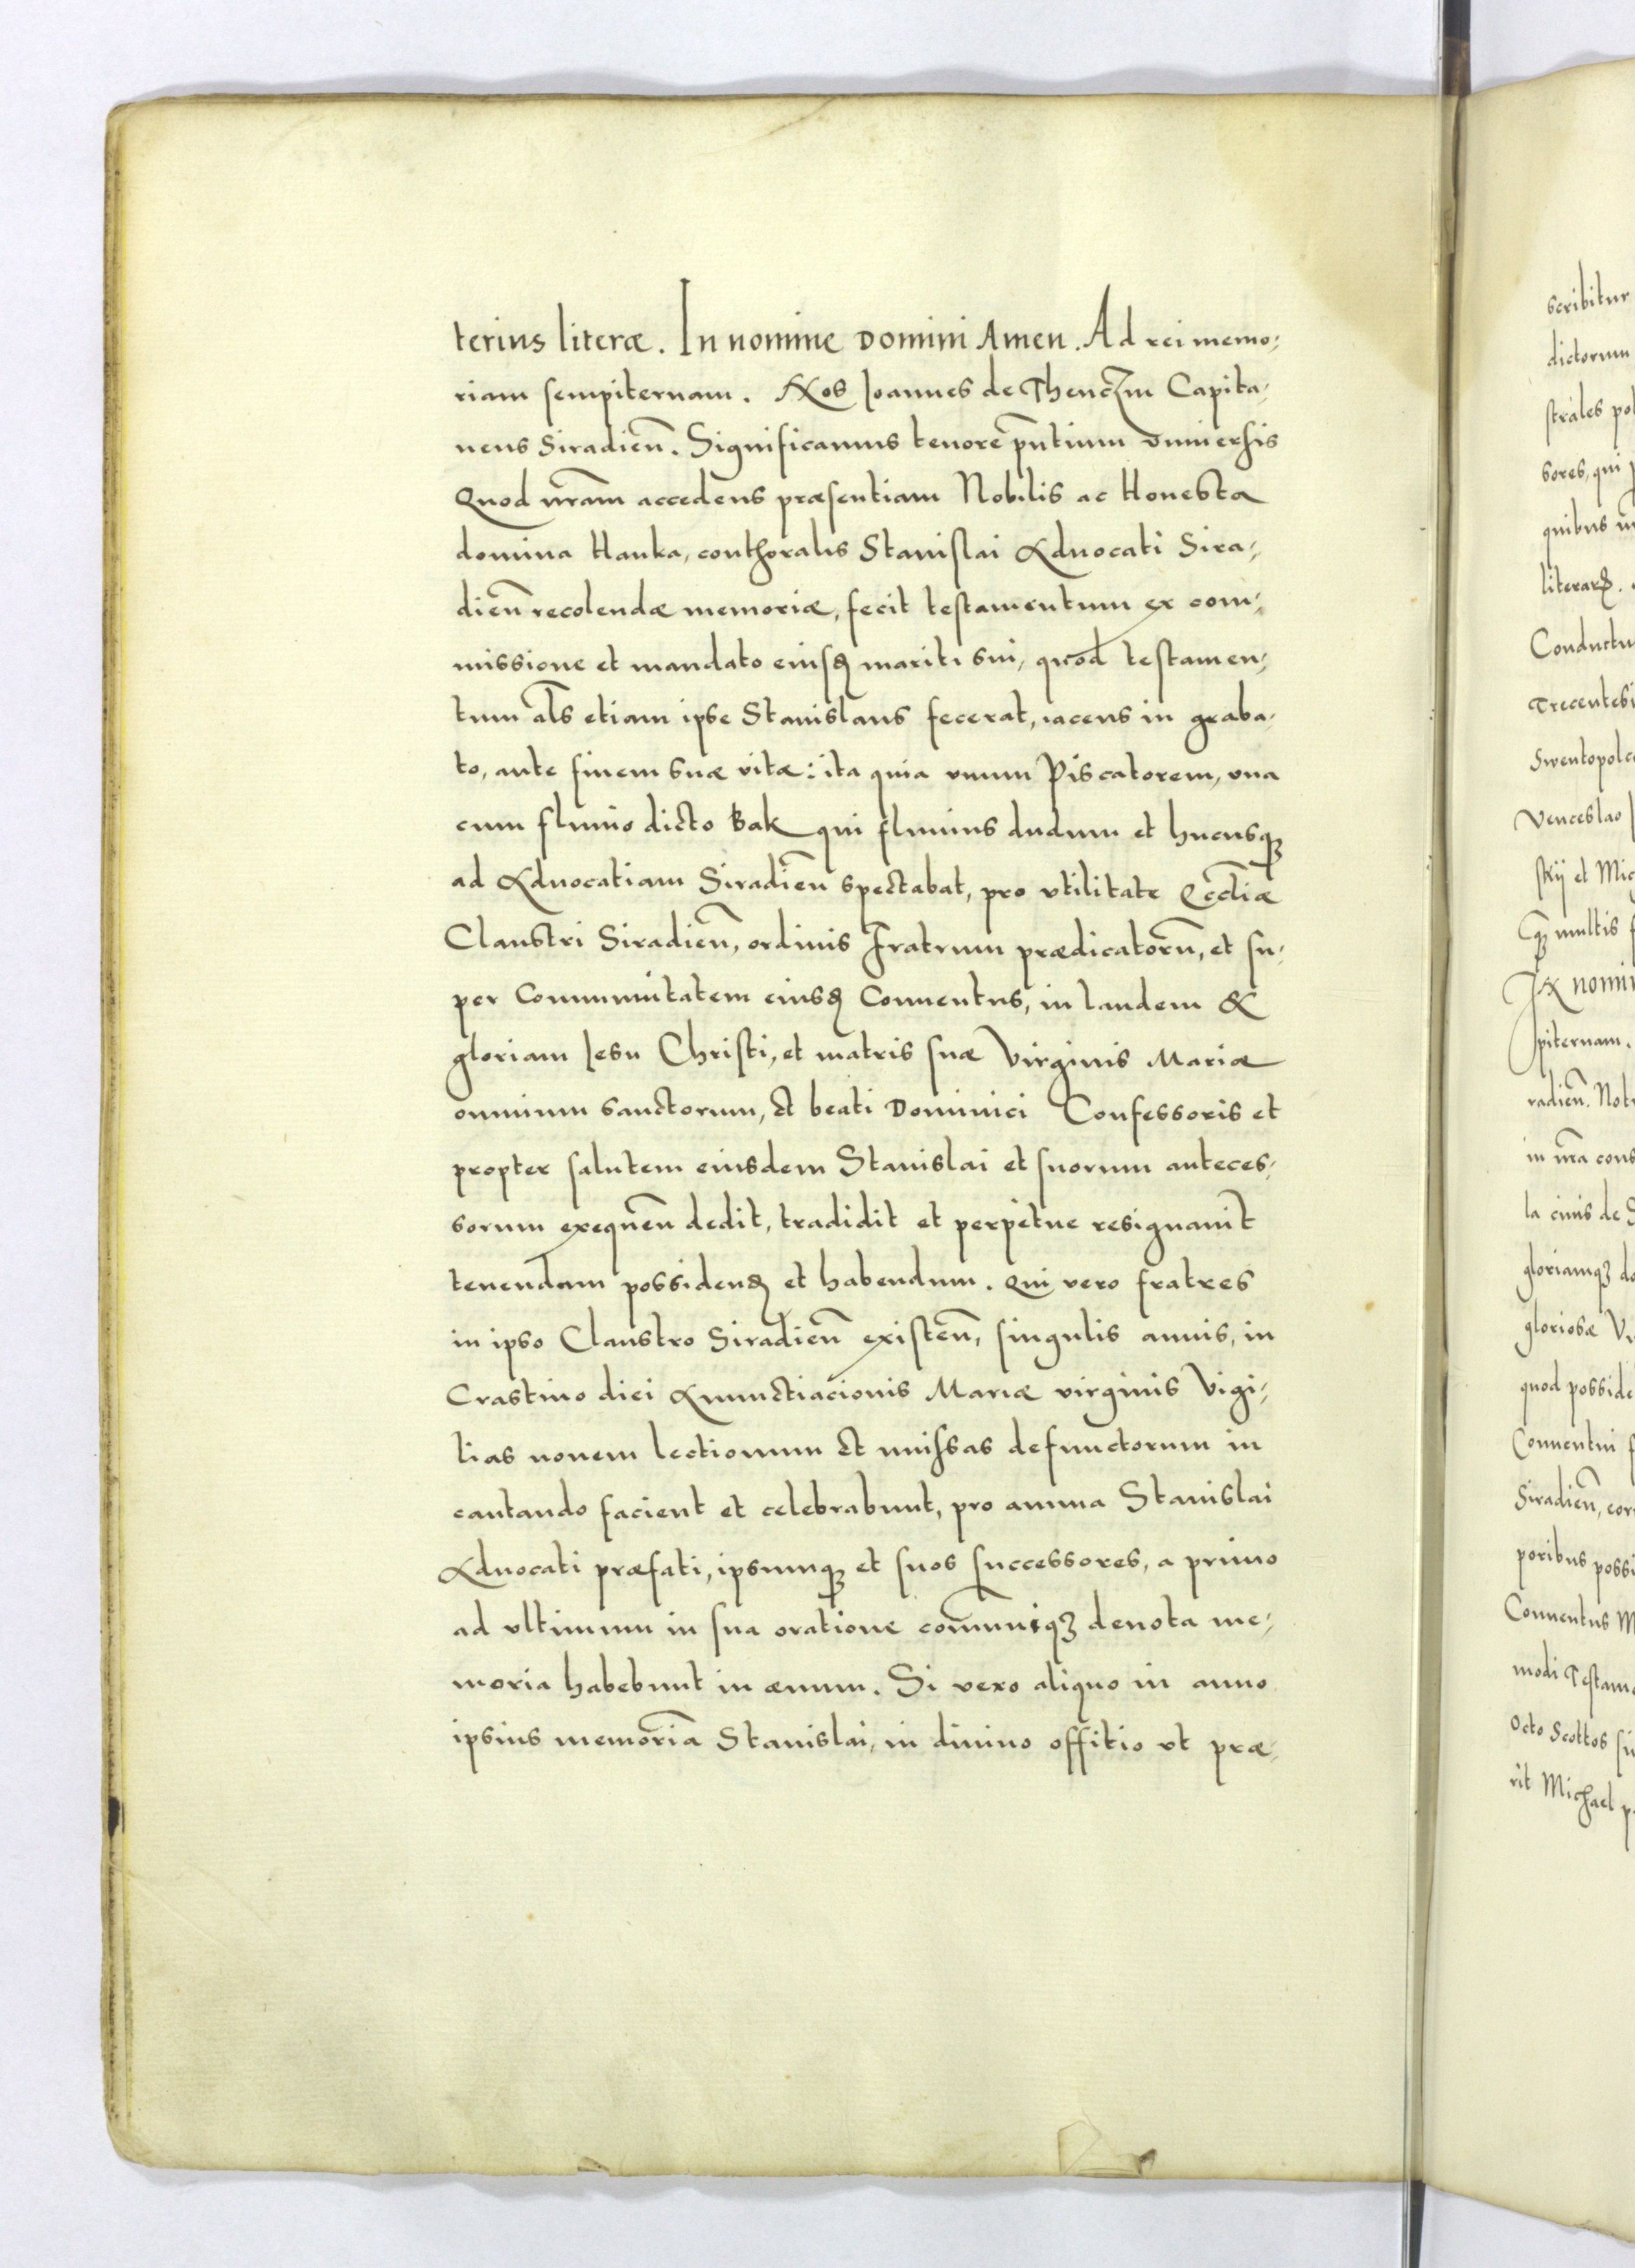 terius literæ. In nomine Domini Amen. Ad rei memo-
riam sempiternam. Nos Joannes de Thenczin Capita-
neus Siradien̄. Significamus tenore pn̄tium vniversis
Quod nr̄am accedens præsentiam Nobilis ac Honesta
domina Hanka, conthoralis Stanislai Aduocati Sira-
dien̄ recolendæ memoriæ, fecit testamentum ex com-
missione et mandato eiusꝗ mariti sui, quod testamen-
tum al̄s etiam ipse Stanislaus fecerat, iacens in graba-
to, ante finem suæ vitæ: ita quia vnum Piscatorem, vna
cum fluuio dicto Bak qui fluuius dudum et hucusqꝫ
ad Aduocatiam Siradien̄ spectabat, pro vtilitate Eccl̄iæ
Claustri Siradien̄, ordinis Fratrum prædicatorū, et su-
per Communitatem eiusꝗ Conuentus, in laudem &
gloriam Jesu Christi, et matris suæ Virginis Mariæ
omnium sanctorum, et beati Dominici Confessoris et
propter salutem eiusdem Stanislai et suorum anteces-
sorum exequen̄ dedit, tradidit et perpetue resignauit
tenendam possidenꝗ et habendum. Qui vero fratres
in ipso Claustro Siradien̄ existen̄, singulis annis, in
Crastino diei Anunctiacionis Mariæ virginis Vigi-
lias nouem lectionum et missas defunctorum in
cantando facient et celebrabunt, pro anima Stanislai
Aduocati præfati, ipsumqꝫ et suos successores, a primo
ad vltimum in sua oratione com̄uniqꝫ deuota me-
moria habebunt in æuum. Si vero aliquo in anno
ipsius memoriā Stanislai, in diuino offitio vt præ-
scribitur
dictorum
strales
sores, qui
quibus
literarꝝ.
Trecentesi
Venceslao
skij et Mic
multis
piternam.
radien̄.
in nr̄a cons
la ciuis de
gloriamqꝫ
gloriosæ
quod posside
Conuentui
Siradien̄,
poribus possi
Conuentus
modi Testam
Octo Scottos
rit Michael